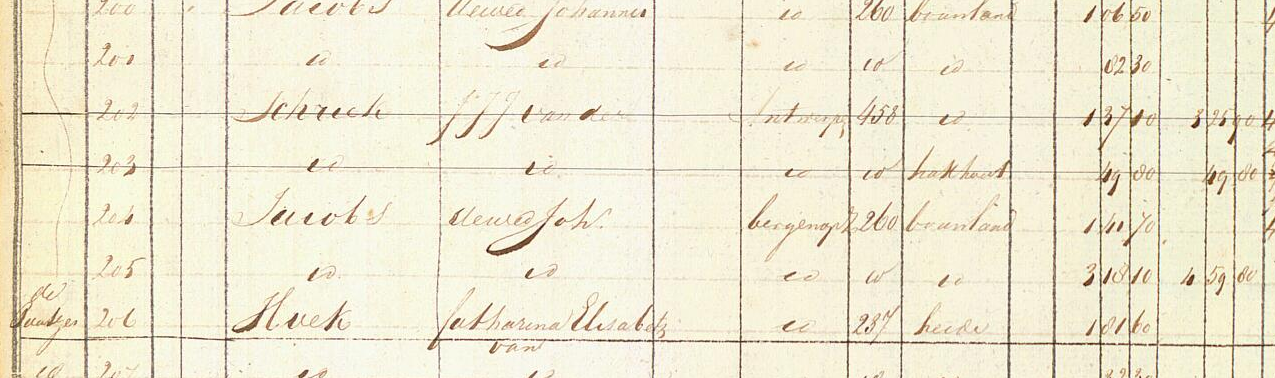 200 Jacobs de wed Johannes id 260 bouwland 1 06 50
201 id id id id id 82 30
202 Schrick JJJ van der Antwerpen 458 id 1 37 10 3 25 90
203 id id id id hakhout 49 80 49 80
204 Jacobs de wed Joh. bergenopz 260 bouwland 1 41 70
205 id id id id id 3 18 10 4 59 80
de
206 Hoek Catharina Elisabeth id 237 heide 1 81 60
van
id 207 id id id